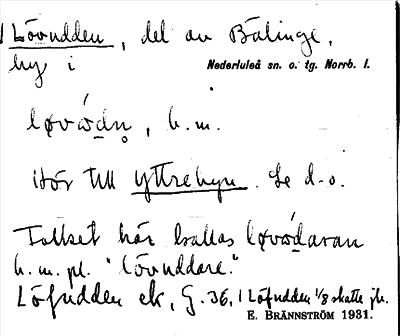 Lövudden, del av Bälinge,
by i Nederluleå sn. o. tg. Norrb. l.
løvὼdn̥, b.m.
Hör till Yttrebyn. Se d-o.
Folket här kallas løvὼdaran
b.m. pl. "lövuddare."
Löfudden ek, G. 36, 1 Löfudden 1/8 skatte jb.
E. BRÄNNSTRÖM 1931.